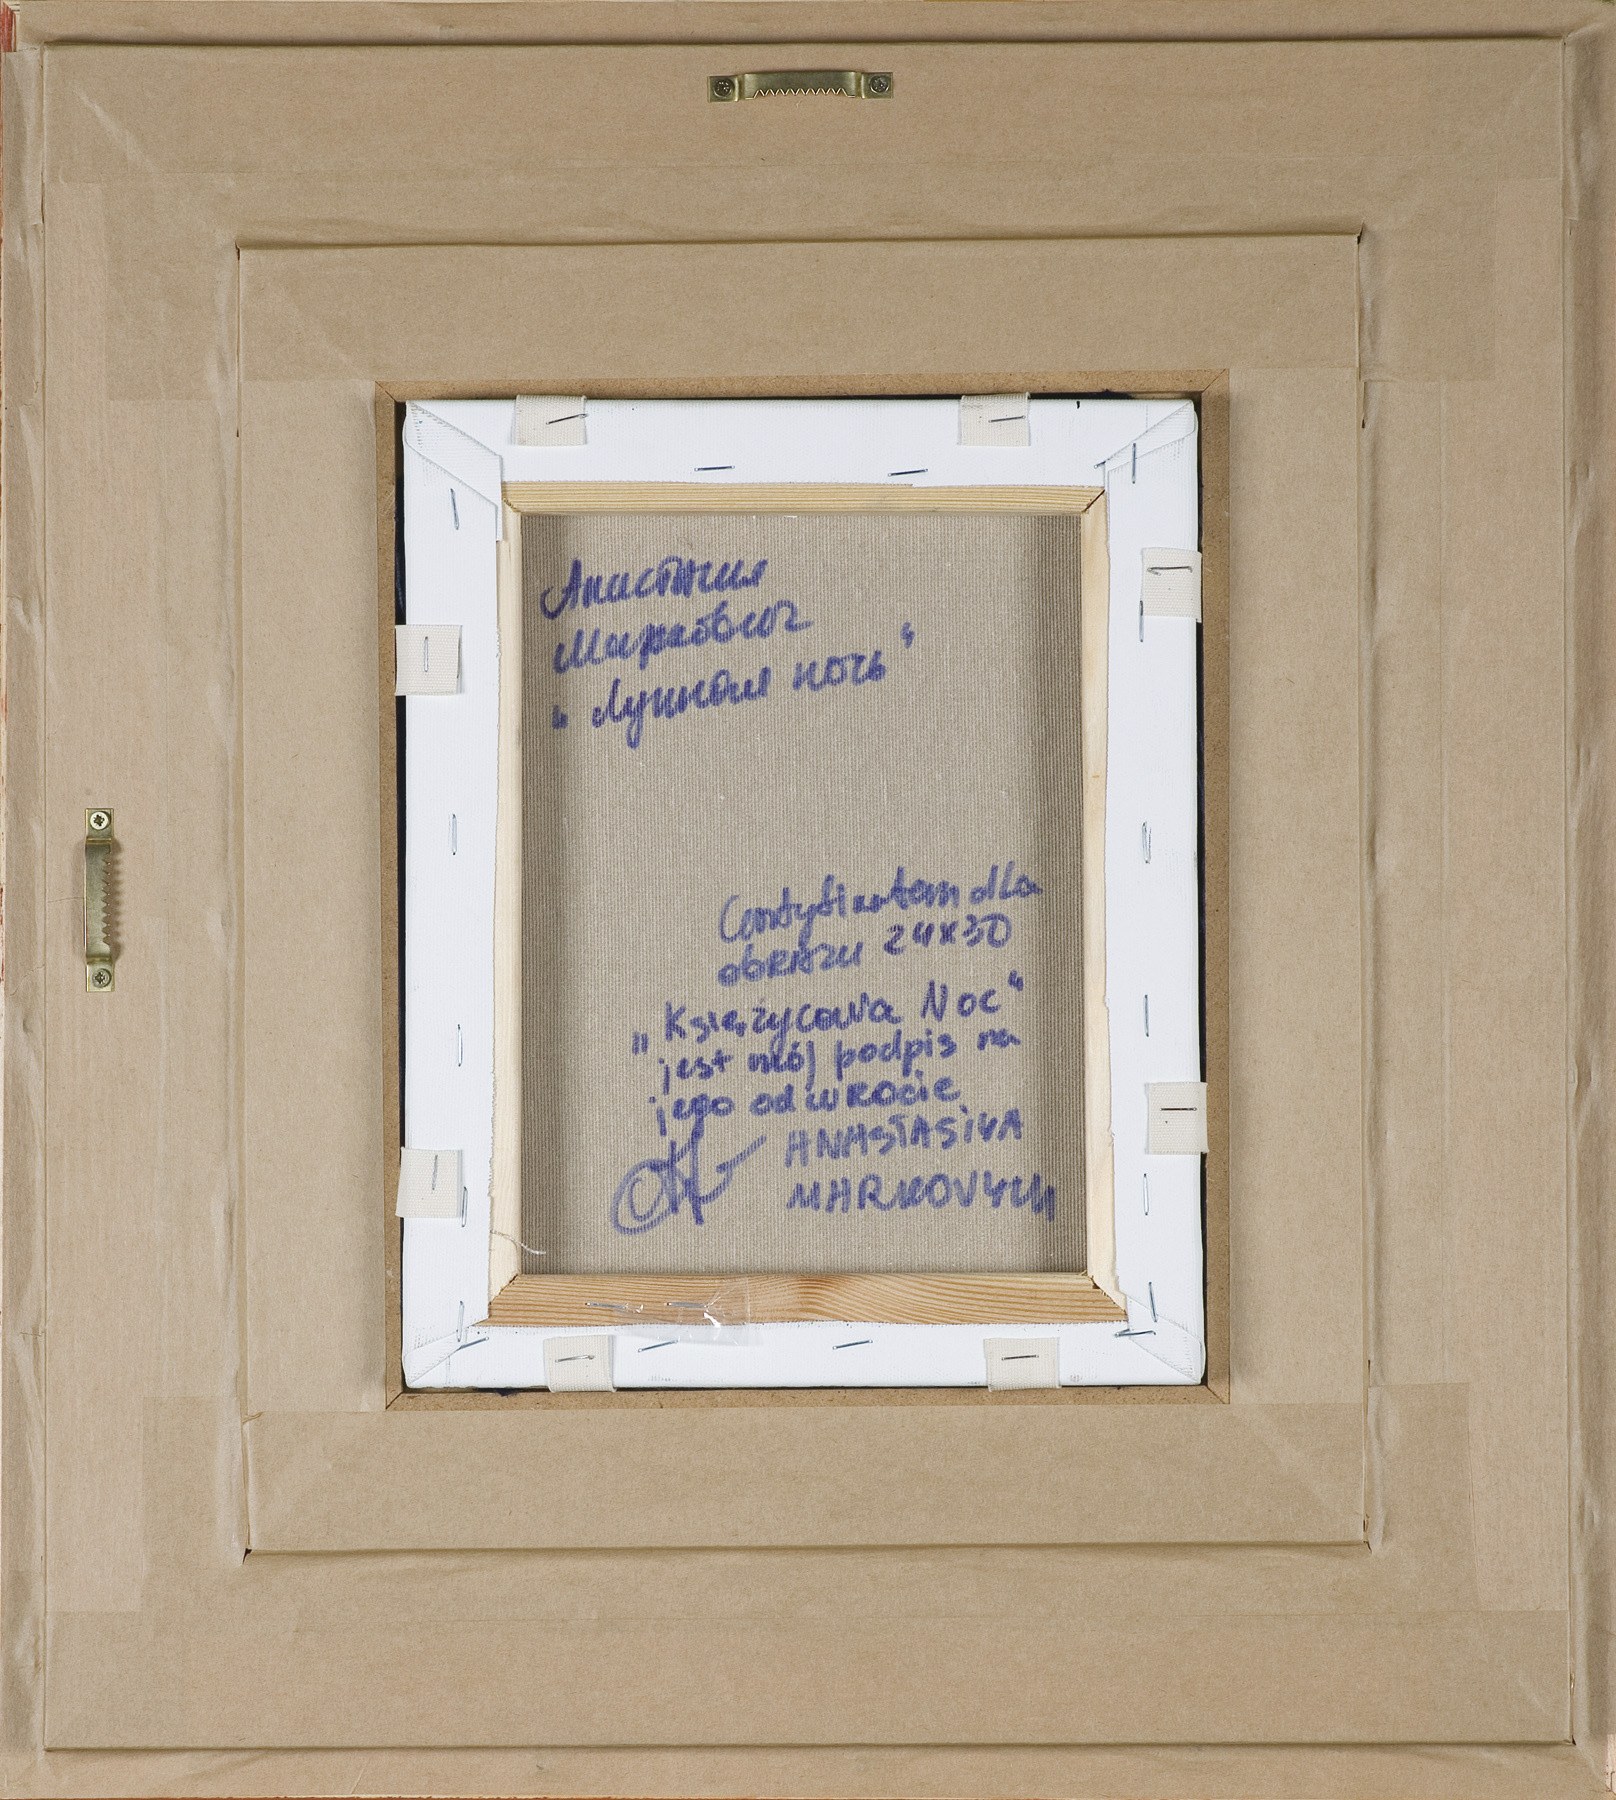 Анастасия
Маркович
„ Лунная ночь “
Certyfikatem dla
obrazu 24x30
„Księżycowa Noc“
jest mój podpis na
jego odwrocie
ANASTASiYA
MARKOVYCH